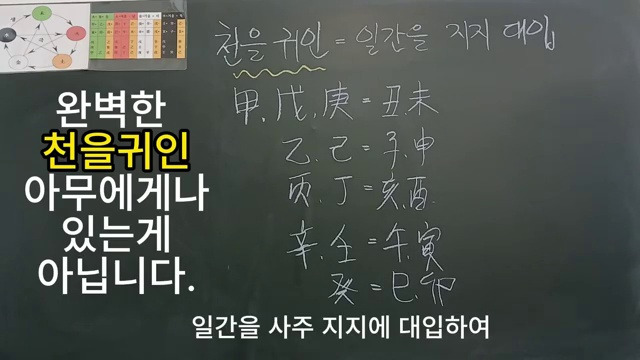 천을 귀인 = 일간을 지지 대입
甲, 戊, 庚 = 丑.未
乙.己 = 子.申
丙.丁 = 亥.酉.
辛.壬 = 午.寅
癸 = 巳.卯
완벽한
천을귀인
아무에게나
있는게
아닙니다.
일간을 사주 지지에 대입하여